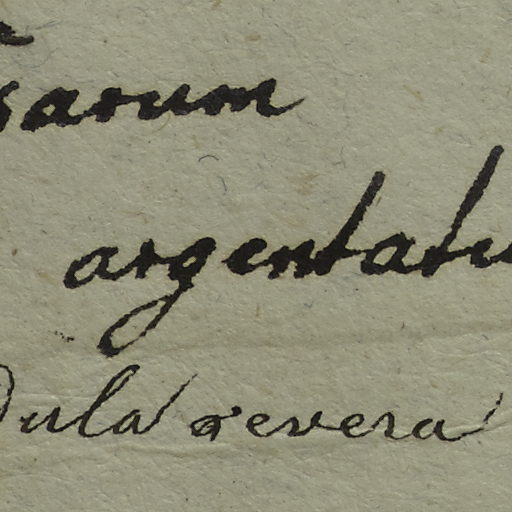 sarum
argentatu
dula revera